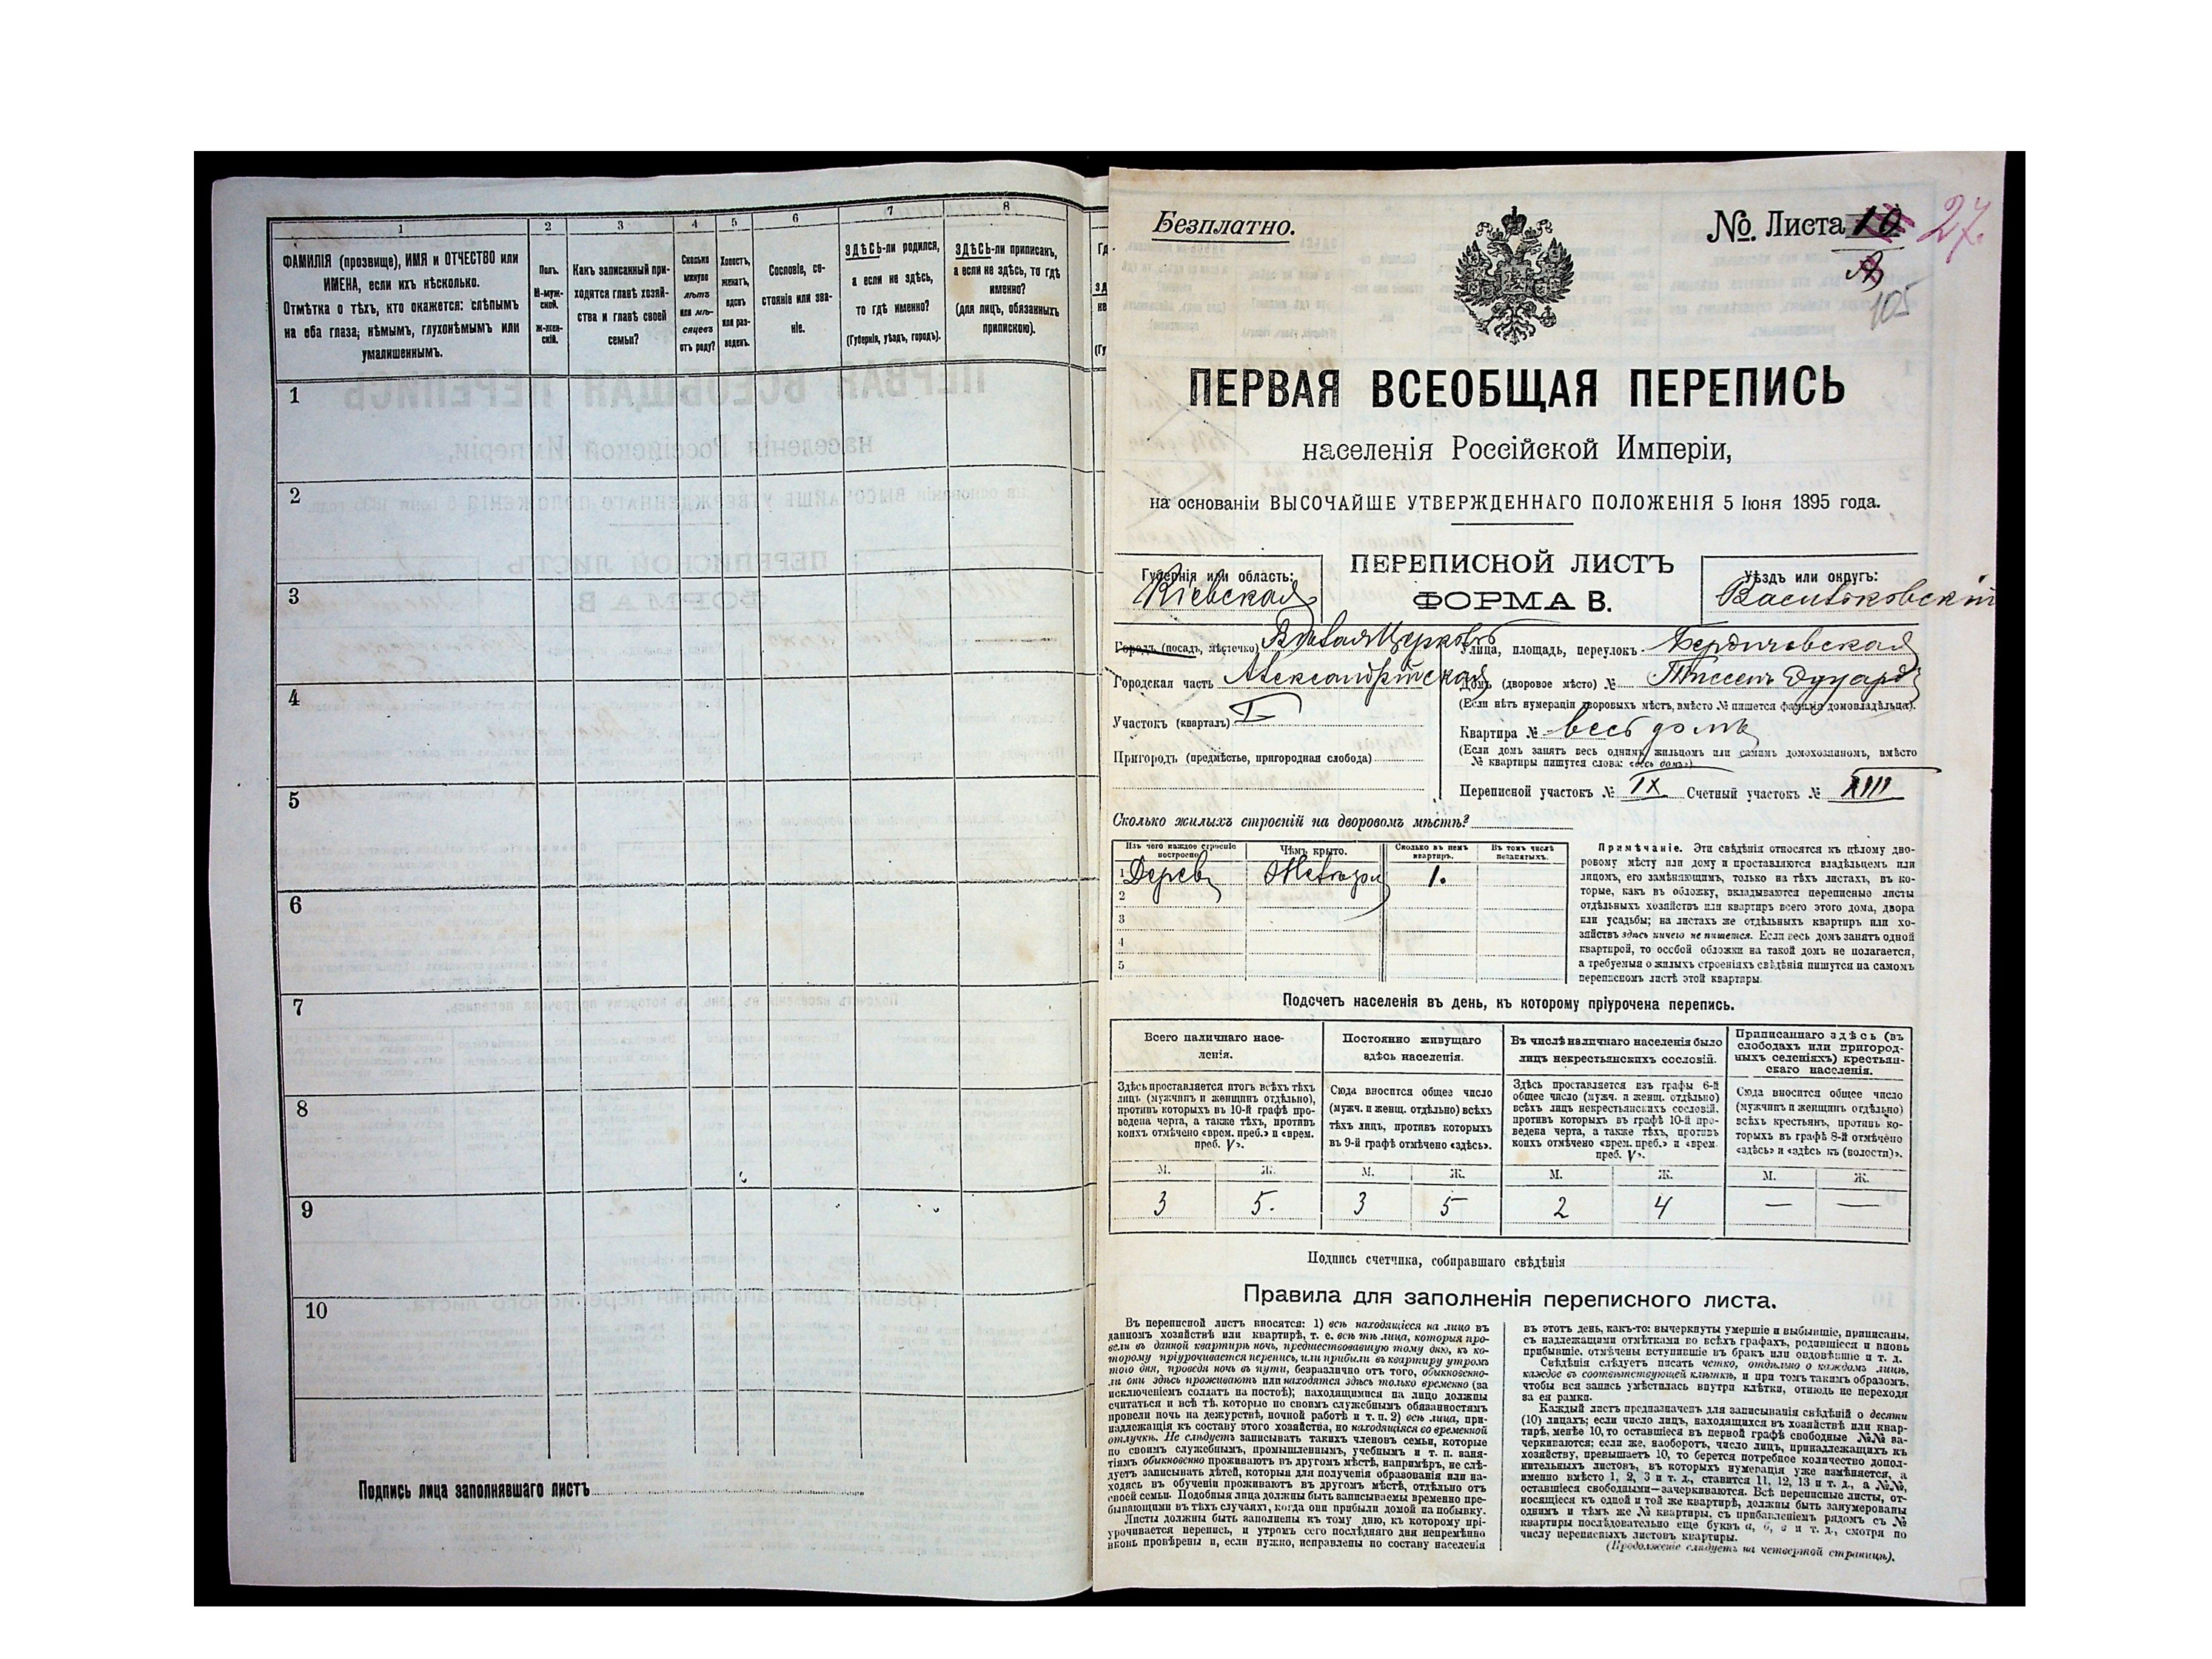 1 2 3 4 5 6 7 8
ФАМИЛІЯ (прозвище), ИМЯ и ОТЧЕСТВО или
ИМЕНА, если ихъ нѣсколько.
Отмѣтка о тѣхъ, кто окажется: слѣпымъ
на оба глаза; нѣмымъ, глухонѣмымъ или
умалишеннымъ.
Полъ.
М-муж-
ской.
Ж-жен-
скій.
Какъ записанный при-
ходится главѣ хозяй-
ства и главѣ своей
семьи?
Сколько
минуло
лѣтъ
или мѣ-
сяцевъ
отъ роду?
Холостъ,
женатъ,
вдовъ
или раз-
веденъ.
Сословіе, со-
стояніе или зва-
ніе.
ЗДѢСЬ-ли родился,
а если не здѣсь,
то гдѣ именно?
(Губернія, уѣздъ, городъ).
ЗДѢСЬ-ли приписанъ,
а если не здѣсь, то гдѣ
именно?
(для лицъ, обязанныхъ
припискою).
1
2
3
4
5
6
7
8
9
10
Подпись лица заполнявшаго листъ
Безплатно.
№ Листа 10 27.
105
ПЕРВАЯ ВСЕОБЩАЯ ПЕРЕПИСЬ
населенія Россійской Имперіи,
на основаніи ВЫСОЧАЙШЕ УТВЕРЖДЕННАГО ПОЛОЖЕНІЯ 5 Іюня 1895 года.
ПЕРЕПИСНОЙ ЛИСТЪ
ФОРМА В.
Губернія или область:
Кіевская
Уѣздъ или округъ:
Васильковскій
Городъ (посад, мѣстечко) Бѣлая Церковь
Городская часть Александрійская
Участокъ (кварталъ) I
Пригородъ (предмѣстье, пригородная слобода)
Улица, площадь, переулокъ Бердичевская
Домъ (дворовое мѣсто) № Тиссенъ Эдуардъ
(Если нѣтъ нумераціи дворовыхъ мѣстъ, вмѣсто № пишется фамилія домовладѣльца).
Квартира № весь домъ
(Если домъ занятъ весь однимъ жильцомъ или самимъ домохозяиномъ, вмѣсто
№ квартиры пишутся слова: «весь домъ»)
Переписной участокъ № IX Счетный участокъ № XIII
Сколько жилыхъ строеній на дворовомъ мѣстѣ?
Изъ чего каждое строеніе
построено.
Чѣмъ крыто.
Сколько въ немъ
квартиръ.
Въ томъ числѣ
незанятыхъ.
1 Дерев. Желѣзом 1.
2
3
4
5
Примѣчаніе. Эти свѣдѣнія относятся къ цѣлому дво-
ровому мѣсту или дому и проставляются владѣльцемъ или
лицомъ, его замѣняющимъ, только на тѣхъ листахъ, въ ко-
торые, какъ въ обложку, вкладываются переписные листы
отдѣльныхъ хозяйствъ или квартиръ всего этого дома, двора
или усадьбы; на листахъ же отдѣльныхъ квартиръ или хо-
зяйствъ здѣсь ничего не пишется. Если весь домъ занятъ одной
квартирой, то особой обложки на такой домъ не полагается,
а требуемыя о жилыхъ строеніяхъ свѣдѣнія пишутся на самомъ
переписномъ листѣ этой квартиры.
Подсчетъ населенія въ день, къ которому пріурочена перепись.
Всего наличнаго насе-
ленія.
Здѣсь проставляется итогъ всѣхъ тѣхъ
лицъ (мужчинъ и женщинъ отдѣльно),
противъ которыхъ въ 10-й графѣ про-
ведена черта, а также тѣхъ, противъ
коихъ отмѣчено «врем. преб.» и «врем.
преб. V».
Постоянно живущаго
здѣсь населенія.
Сюда вносится общее число
(мужч. и женщ. отдѣльно) всѣхъ
тѣхъ лицъ, противъ которыхъ
въ 9-й графѣ отмѣчено «здѣсь».
Въ числѣ наличнаго населенія было
лицъ некрестьянскихъ сословій.
Здѣсь проставляется изъ графы 6-й
общее число (мужч. и женщ. отдѣльно)
всѣхъ лицъ некрестьянскихъ сословій,
противъ которыхъ въ графѣ 10-й про-
ведена черта, а также тѣхъ, противъ
коихъ отмѣчено «врем. преб.» и «врем.
преб. V».
Приписаннаго здѣсь (въ
слободахъ или пригород-
ныхъ селеніяхъ) крестьян-
скаго населенія.
Сюда вносится общее число
(мужчинъ и женщинъ отдѣльно)
всѣхъ крестьянъ, противъ ко-
торыхъ въ графѣ 8-й отмѣчено
«здѣсь» и «здѣсь къ (волости)».
М. Ж. М. Ж. М. Ж. М. Ж.
3 5. 3 5 2 4 — —
Подпись счетчика, собиравшаго свѣдѣнія
Правила для заполненія переписного листа.
Въ переписной листъ вносятся: 1) всѣ находящіеся на лицо въ
данномъ хозяйствѣ или квартирѣ, т. е. всѣ тѣ лица, которыя про-
вели въ данной квартирѣ ночь, предшествовавшую тому дню, къ ко-
торому пріурочивается перепись, или прибыли въ квартиру утромъ
того дня, проведя ночь въ пути, безразлично отъ того, обыкновенно-
ли они здѣсь проживаютъ или находятся здѣсь только временно (за
исключеніемъ солдатъ на постоѣ); находящимися на лицо должны
считаться и всѣ тѣ, которые по своимъ служебнымъ обязанностямъ
провели ночь на дежурствѣ, ночной работѣ и т. п. 2) всѣ лица, при-
надлежащія къ составу этого хозяйства, но находящіяся во временной
отлучкѣ. Не слѣдуетъ записывать такихъ членовъ семьи, которые
по своимъ служебнымъ, промышленнымъ, учебнымъ и т. п. заня-
тіямъ обыкновенно проживаютъ въ другомъ мѣстѣ, напримѣръ, не слѣ-
дуетъ записывать дѣтей, которыя для полученія образованія или на-
ходясь въ обученіи проживаютъ въ другомъ мѣстѣ, отдѣльно отъ
своей семьи. Подобныя лица должны быть записываемы временно пре-
бывающими въ тѣхъ случаяхъ, когда они прибыли домой на побывку.
Листы должны быть заполнены къ тому дню, къ которому прі-
урочивается перепись, и утромъ сего послѣдняго дня непремѣнно
вновь провѣрены и, если нужно, исправлены по составу населенія
въ этотъ день, какъ-то: вычеркнуты умершіе и выбывшіе, приписаны,
съ надлежащими отмѣтками во всѣхъ графахъ, родившіеся и вновь
прибывшіе, отмѣчены вступившіе въ бракъ или овдовѣвшіе и т. д.
Свѣдѣнія слѣдуетъ писать четко, отдѣльно о каждомъ лицѣ,
каждое въ соотвѣтствующей клѣткѣ, и при томъ такимъ образомъ,
чтобы вся запись умѣстилась внутри клѣтки, отнюдь не переходя
за ея рамки.
Каждый листъ предназначенъ для записыванія свѣдѣній о десяти
(10) лицахъ; если число лицъ, находящихся въ хозяйствѣ или квар-
тирѣ, менѣе 10, то оставшіеся въ первой графѣ свободные №№ за-
черкиваются; если же, наоборотъ, число лицъ, принадлежащихъ къ
хозяйству, превышаетъ 10, то берется потребное количество допол-
нительныхъ листовъ, въ которыхъ нумерація уже измѣняется, а
именно вмѣсто 1, 2, 3 и т. д., ставится 11, 12, 13 и т. д., а №№,
оставшіеся свободными—зачеркиваются. Всѣ переписные листы, от-
носящіеся къ одной и той же квартирѣ, должны быть занумерованы
однимъ и тѣмъ же № квартиры, съ прибавленіемъ рядомъ съ №
квартиры послѣдовательно еще буквъ а, б, в и т. д., смотря по
числу переписныхъ листовъ квартиры.
(Продолженіе слѣдуетъ на четвертой страницѣ).